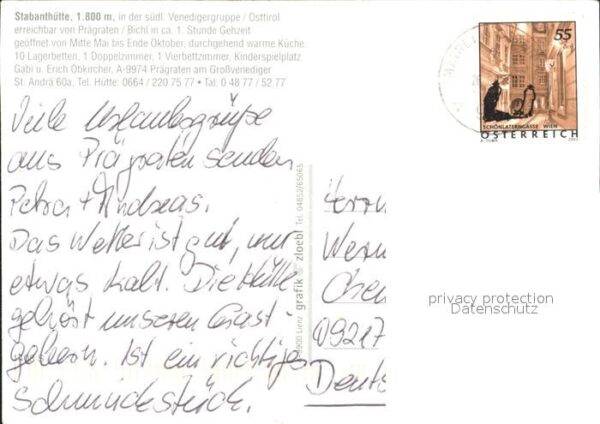 Stabanthütte, 1.800 m, in der südl. Venedigergruppe / Osttirol
erreichbar von Prägraten / Bichl in ca. 1. Stunde Gehzeit
geöffnet von Mitte Mai bis Ende Oktober, durchgehend warme Küche
10 Lagerbetten, 1 Doppelzimmer, 1 Vierbettzimmer, Kinderspielplatz
Gabi u. Erich Obkircher, A-9974 Prägraten am Großvenediger
St. Andrä 60a, Tel. Hütte: 0664 / 220 75 77 • Tal: 0 48 77 / 52 77
55
SCHÖNLATERNGASSE WIEN
ÖSTERREICH
Viele Urlaubsgrüße
aus Prägraten senden
Petra + Andreas.
Das Wetter ist gut, nur
etwas kalt. Die Hütte
gehört unseren Gast-
gebern. Ist ein richtiges
Schmuckstück.
9900 Lienz grafik zloebl Tel. 04852/65065
Herrn
Wern
Chem
09217
Deuts
privacy protection
Datenschutz